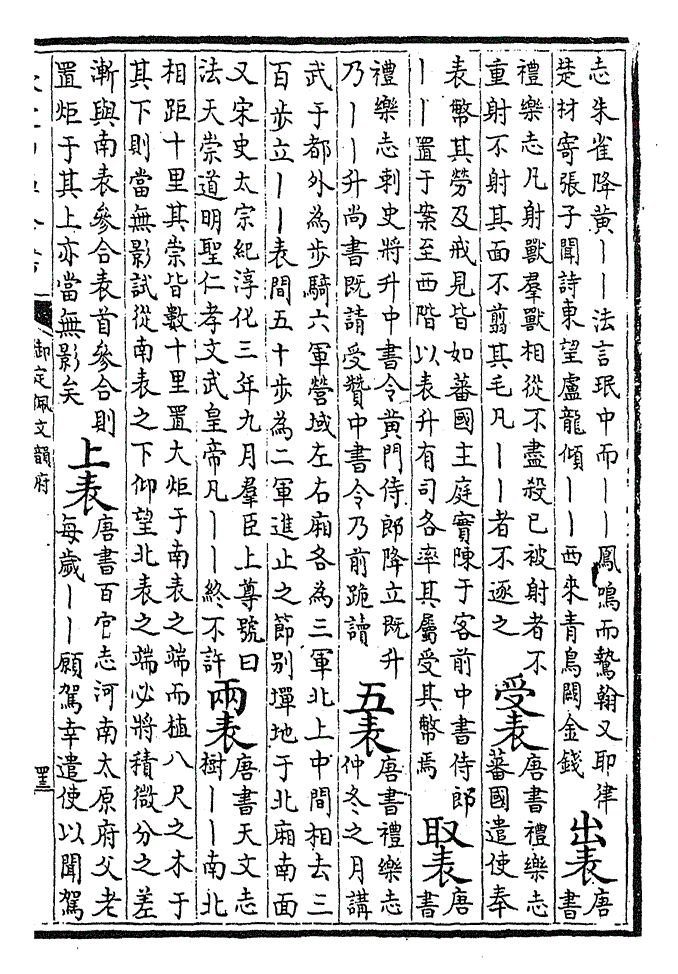 志朱雀降黃丨丨法言珉中而丨丨鳳鳴而鷙翰又耶律
楚材寄張子聞詩東望盧龍傾丨丨西來青鳥闕金錢
出表
唐
書
禮樂志凡射獸羣獸相從不盡殺已被射者不
重射不射其面不翦其毛凡丨丨者不逐之
受表
唐書禮樂志
蕃國遣使奉
表幣其勞及戒見皆如蕃國主庭實陳于客前中書侍郎
丨丨置于案至西階以表升有司各率其屬受其幣焉
取表
唐
書
禮樂志刺史將升中書令黃門侍郎降立既升
乃丨丨升尚書既請受贊中書令乃前跪讀
五表
唐書禮樂志
仲冬之月講
武于都外為步騎六軍營域左右廂各為三軍北上中間相去三
百步立丨丨表間五十步為二軍進止之節別墠地于北廂南面
又宋史太宗紀淳化三年九月羣臣上尊號曰
法天崇道明聖仁孝文武皇帝凡丨丨終不許
兩表
唐書天文志
樹丨丨南北
相距十里其崇皆數十里置大炬于南表之端而植八尺之木于
其下則當無影試從南表之下仰望北表之端必將積微分之差
漸與南表參合表首參合則
置炬于其上亦當無影矣
上表
唐書百官志河南太原府父老
每歲丨丨願駕幸遣使以聞駕
御定佩文韻府